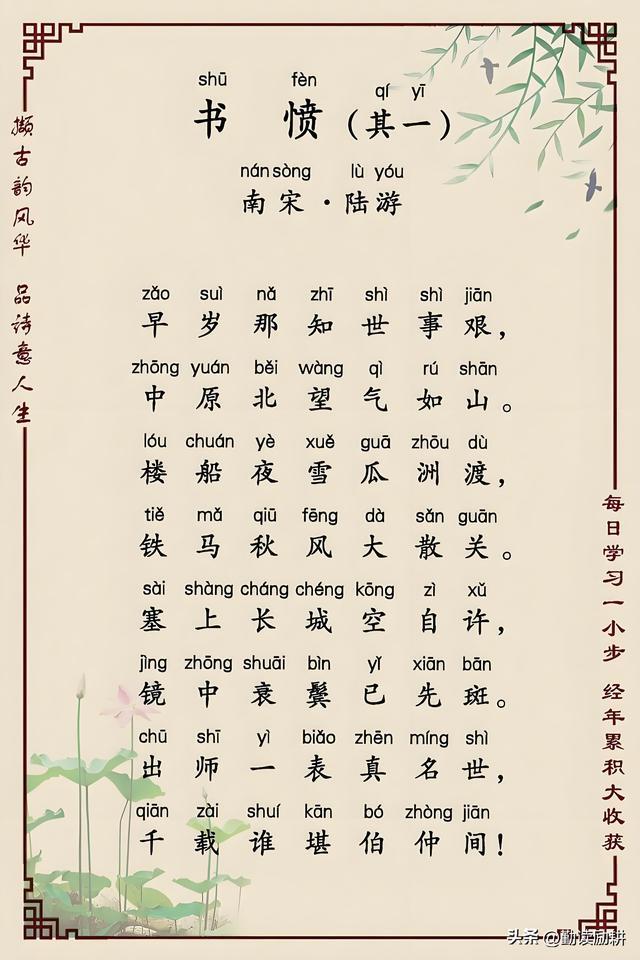 shū fèn qí yī
书愤(其一)
nán sòng lù yóu
南宋·陆游
zǎo suì nǎ zhī shì shì jiān
早岁那知世事艰，
zhōng yuán běi wàng qì rú shān
中原北望气如山。
lóu chuán yè xuě guā zhōu dù
楼船夜雪瓜洲渡，
tiě mǎ qiū fēng dà sǎn guān
铁马秋风大散关。
sài shàng cháng chéng kōng zì xǔ
塞上长城空自许，
jìng zhōng shuāi bìn yǐ xiān bān
镜中衰鬓已先斑。
chū shī yì biǎo zhēn míng shì
出师一表真名世，
qiān zài shuí kān bó zhòng jiān
千载谁堪伯仲间！
撷古韵风华 品诗意人生
每日学习一小步 经年累积大收获
头条 @勤读励耕